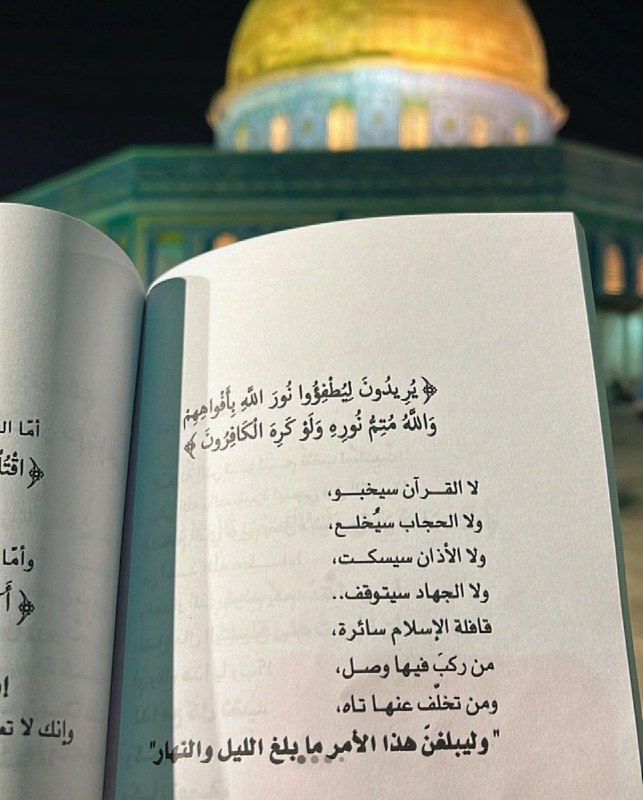 ﴿ يُرِيدُونَ لِيُطْفِؤُوا نُورَ اللَّهِ بِأَفْوَاهِهِمْ
وَاللَّهُ مُتِمُّ نُورِهِ وَلَوْ كَرِهَ الْكَافِرُونَ ﴾
لا القـرآن سيخبـو،
ولا الحجاب سيُخلـع،
ولا الأذان سيسكـت،
ولا الجهاد سيتوقف..
قافلة الإسلام سائرة،
من ركبَ فيها وصـل،
ومن تخلّف عنهـا تاه،
"وليبلغنّ هذا الأمر ما بلغ الليل والنهار"
أمّا
﴿
وأمّا
﴿
وإنك لا